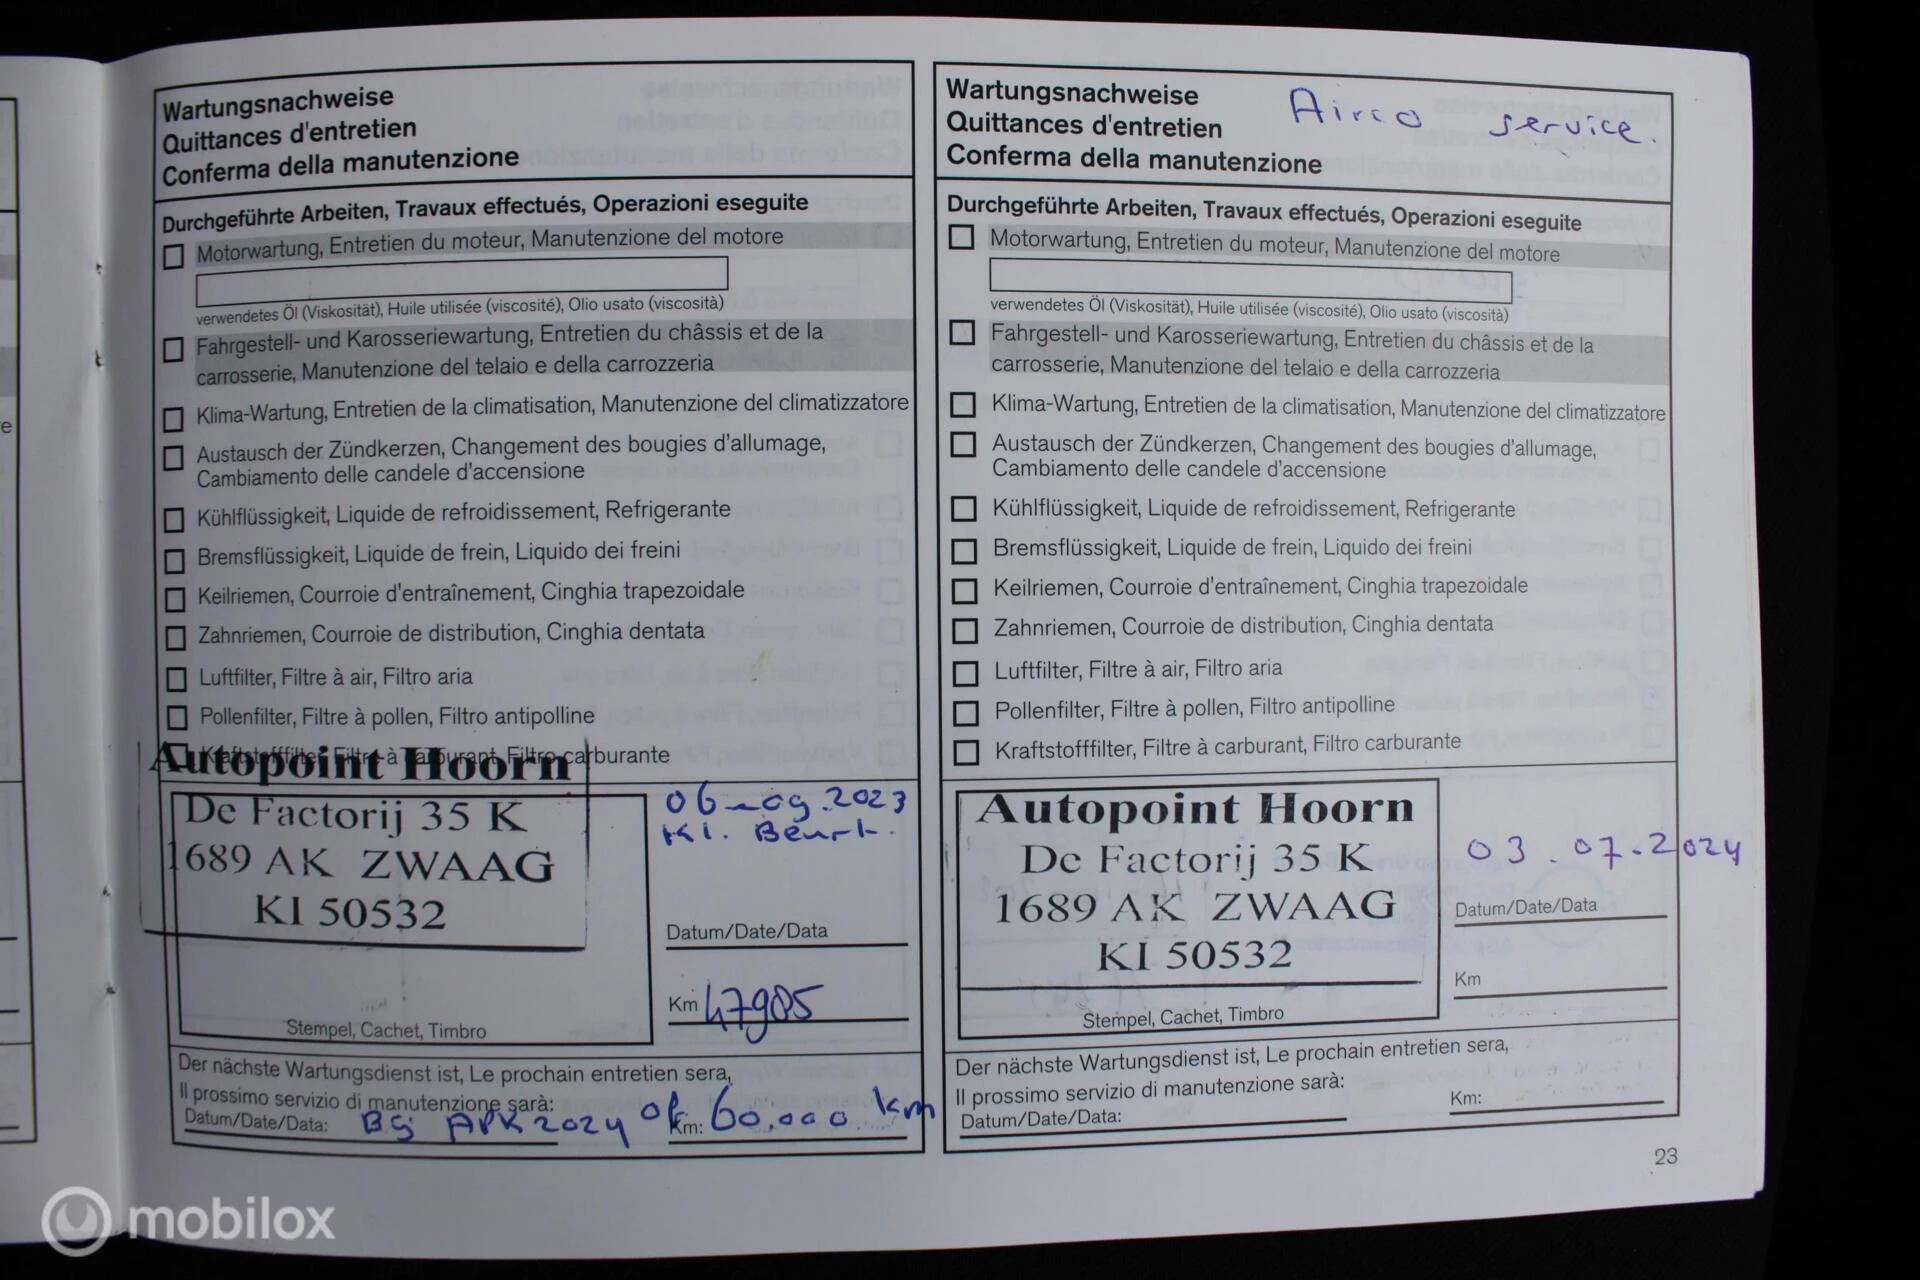 Wartungsnachweise
Quittances d'entretien
Conferma della manutenzione
Durchgeführte Arbeiten, Travaux effectués, Operazioni eseguite
Motorwartung, Entretien du moteur, Manutenzione del motore
verwendetes Öl (Viskosität), Huile utilisée (viscosité), Olio usato (viscosità)
Fahrgestell- und Karosseriewartung, Entretien du châssis et de la
carrosserie, Manutenzione del telaio e della carrozzeria
Klima-Wartung, Entretien de la climatisation, Manutenzione del climatizzatore
Austausch der Zündkerzen, Changement des bougies d'allumage,
Cambiamento delle candele d'accensione
Kühlflüssigkeit, Liquide de refroidissement, Refrigerante
Bremsflüssigkeit, Liquide de frein, Liquido dei freini
Keilriemen, Courroie d'entraînement, Cinghia trapezoidale
Zahnriemen, Courroie de distribution, Cinghia dentata
Luftfilter, Filtre à air, Filtro aria
Pollenfilter, Filtre à pollen, Filtro antipolline
Kraftstofffilter, Filtre à carburant, Filtro carburante
Autopoint Hoorn
De Factorij 35 K
1689 AK ZWAAG
KI 50532
Stempel, Cachet, Timbro
06-09.2023
Kl. Beurt.
Datum/Date/Data
Km 47905
Der nächste Wartungsdienst ist, Le prochain entretien sera,
Il prossimo servizio di manutenzione sarà:
Datum/Date/Data: Bij APK 2024 of Km: 60.000 km
Wartungsnachweise
Quittances d'entretien
Conferma della manutenzione
Airco service
Durchgeführte Arbeiten, Travaux effectués, Operazioni eseguite
Motorwartung, Entretien du moteur, Manutenzione del motore
verwendetes Öl (Viskosität), Huile utilisée (viscosité), Olio usato (viscosità)
Fahrgestell- und Karosseriewartung, Entretien du châssis et de la
carrosserie, Manutenzione del telaio e della carrozzeria
Klima-Wartung, Entretien de la climatisation, Manutenzione del climatizzatore
Austausch der Zündkerzen, Changement des bougies d'allumage,
Cambiamento delle candele d'accensione
Kühlflüssigkeit, Liquide de refroidissement, Refrigerante
Bremsflüssigkeit, Liquide de frein, Liquido dei freini
Keilriemen, Courroie d'entraînement, Cinghia trapezoidale
Zahnriemen, Courroie de distribution, Cinghia dentata
Luftfilter, Filtre à air, Filtro aria
Pollenfilter, Filtre à pollen, Filtro antipolline
Kraftstofffilter, Filtre à carburant, Filtro carburante
Autopoint Hoorn
De Factorij 35 K
1689 AK ZWAAG
KI 50532
Stempel, Cachet, Timbro
03.07.2024
Datum/Date/Data
Km
Der nächste Wartungsdienst ist, Le prochain entretien sera,
Il prossimo servizio di manutenzione sarà:
Datum/Date/Data:
Km:
23
mobilox